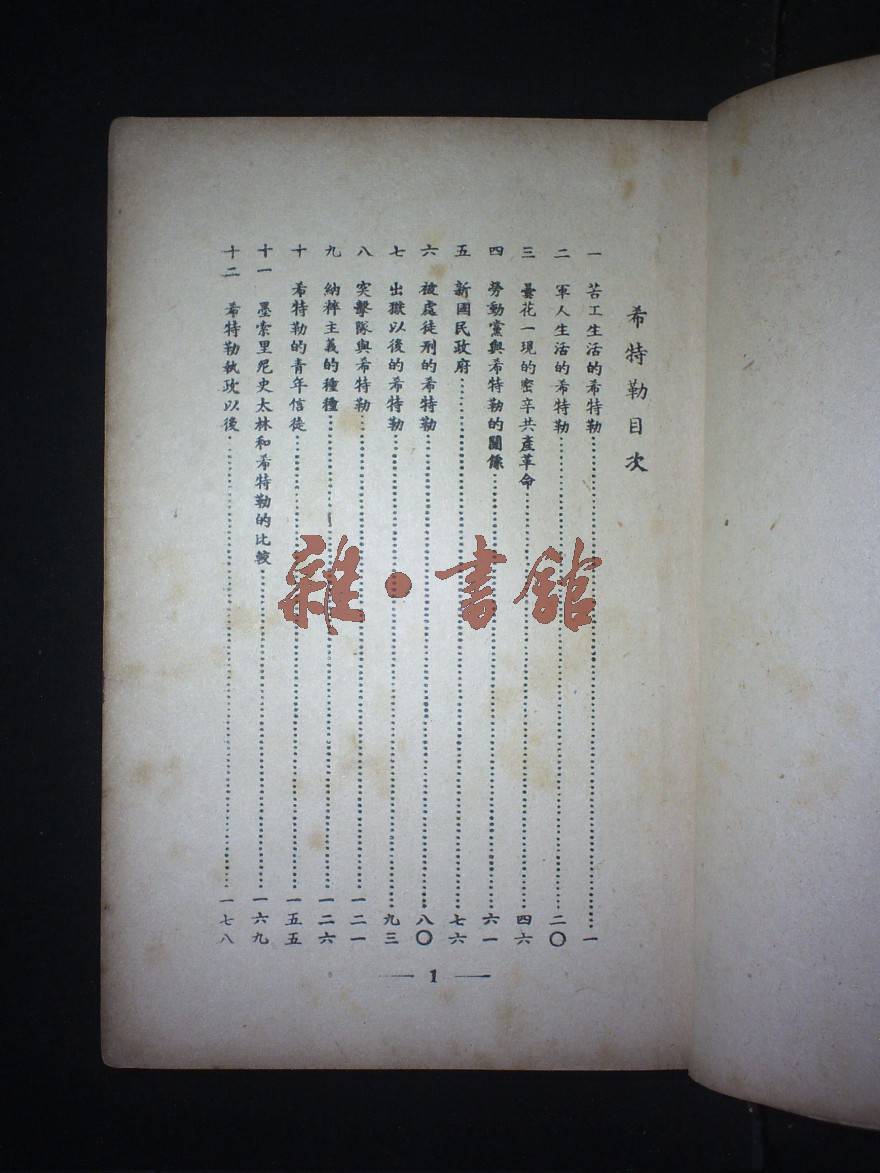 希特勒目次
一 苦工生活的希特勒……一
二 軍人生活的希特勒……二〇
三 曇花一現的密辛共產革命……四六
四 勞動黨與希特勒的關係……六一
五 新國民政府……七六
六 被處徒刑的希特勒……八〇
七 出獄以後的希特勒……九三
八 突擊隊與希特勒……一二一
九 納粹主義的種種……一二六
十 希特勒的青年信徒……一五五
十一 墨索里尼史太林和希特勒的比較……一六九
十二 希特勒執政以後……一七八
— 1 —
雜·書館